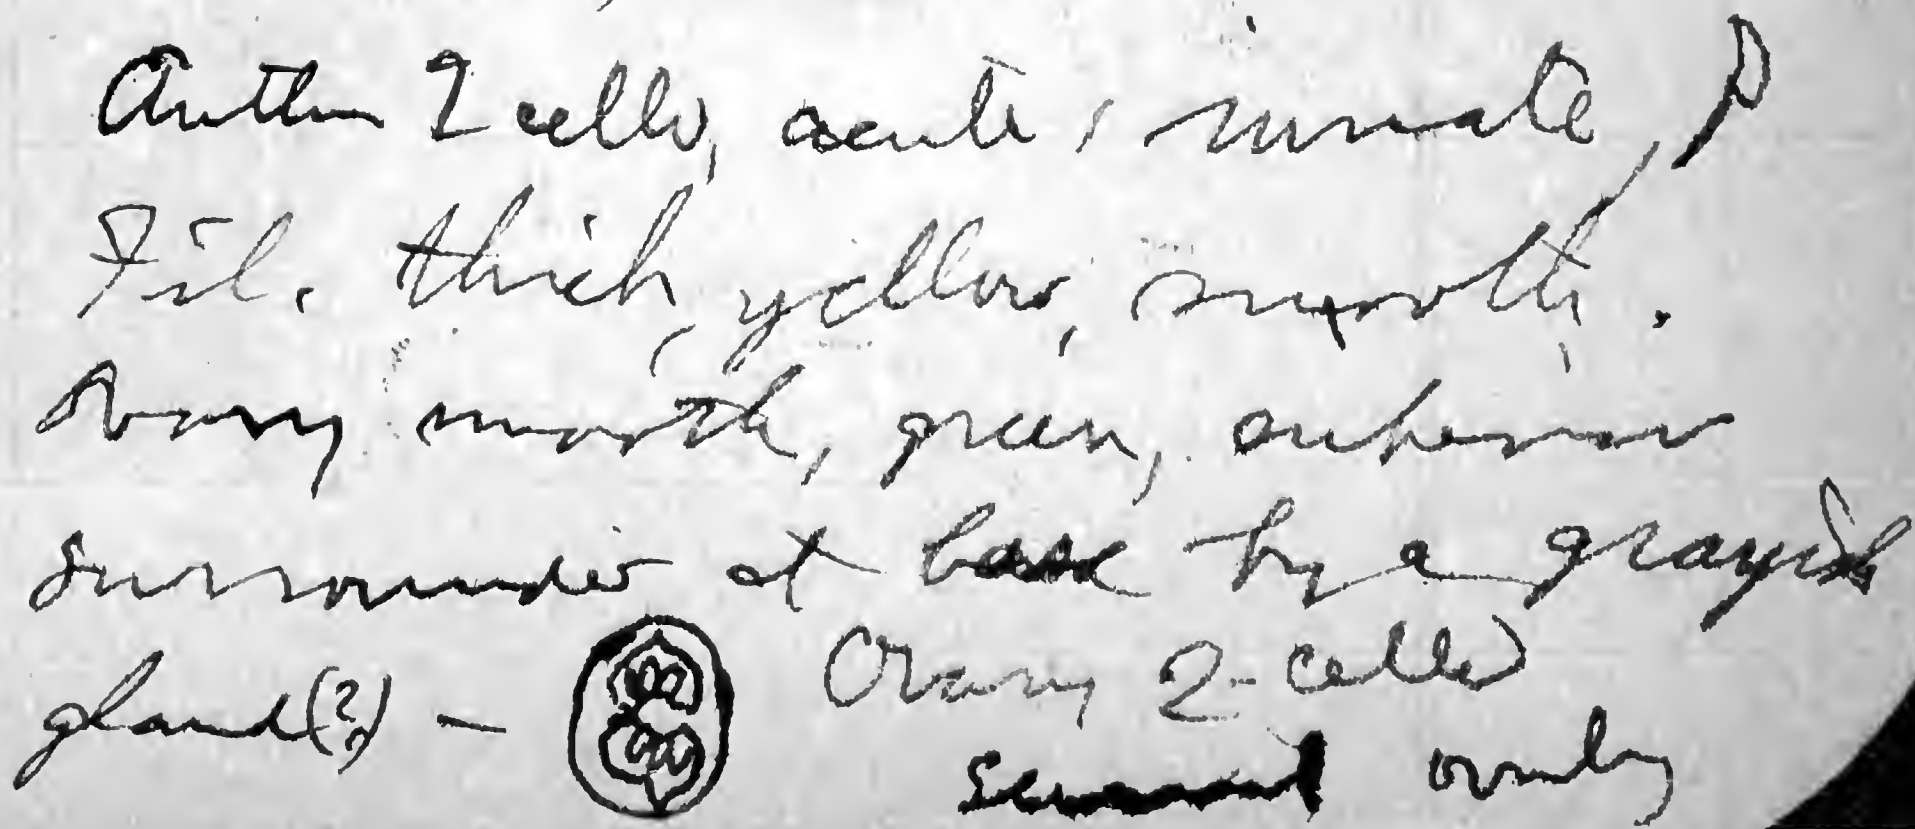 Anther 2 celled, acute, innate,
Fil. thick, yellow, smooth.
Ovary smooth, green, superior
surrounded at base by a grayish
gland (?) — Ovary 2-celled
several ovules